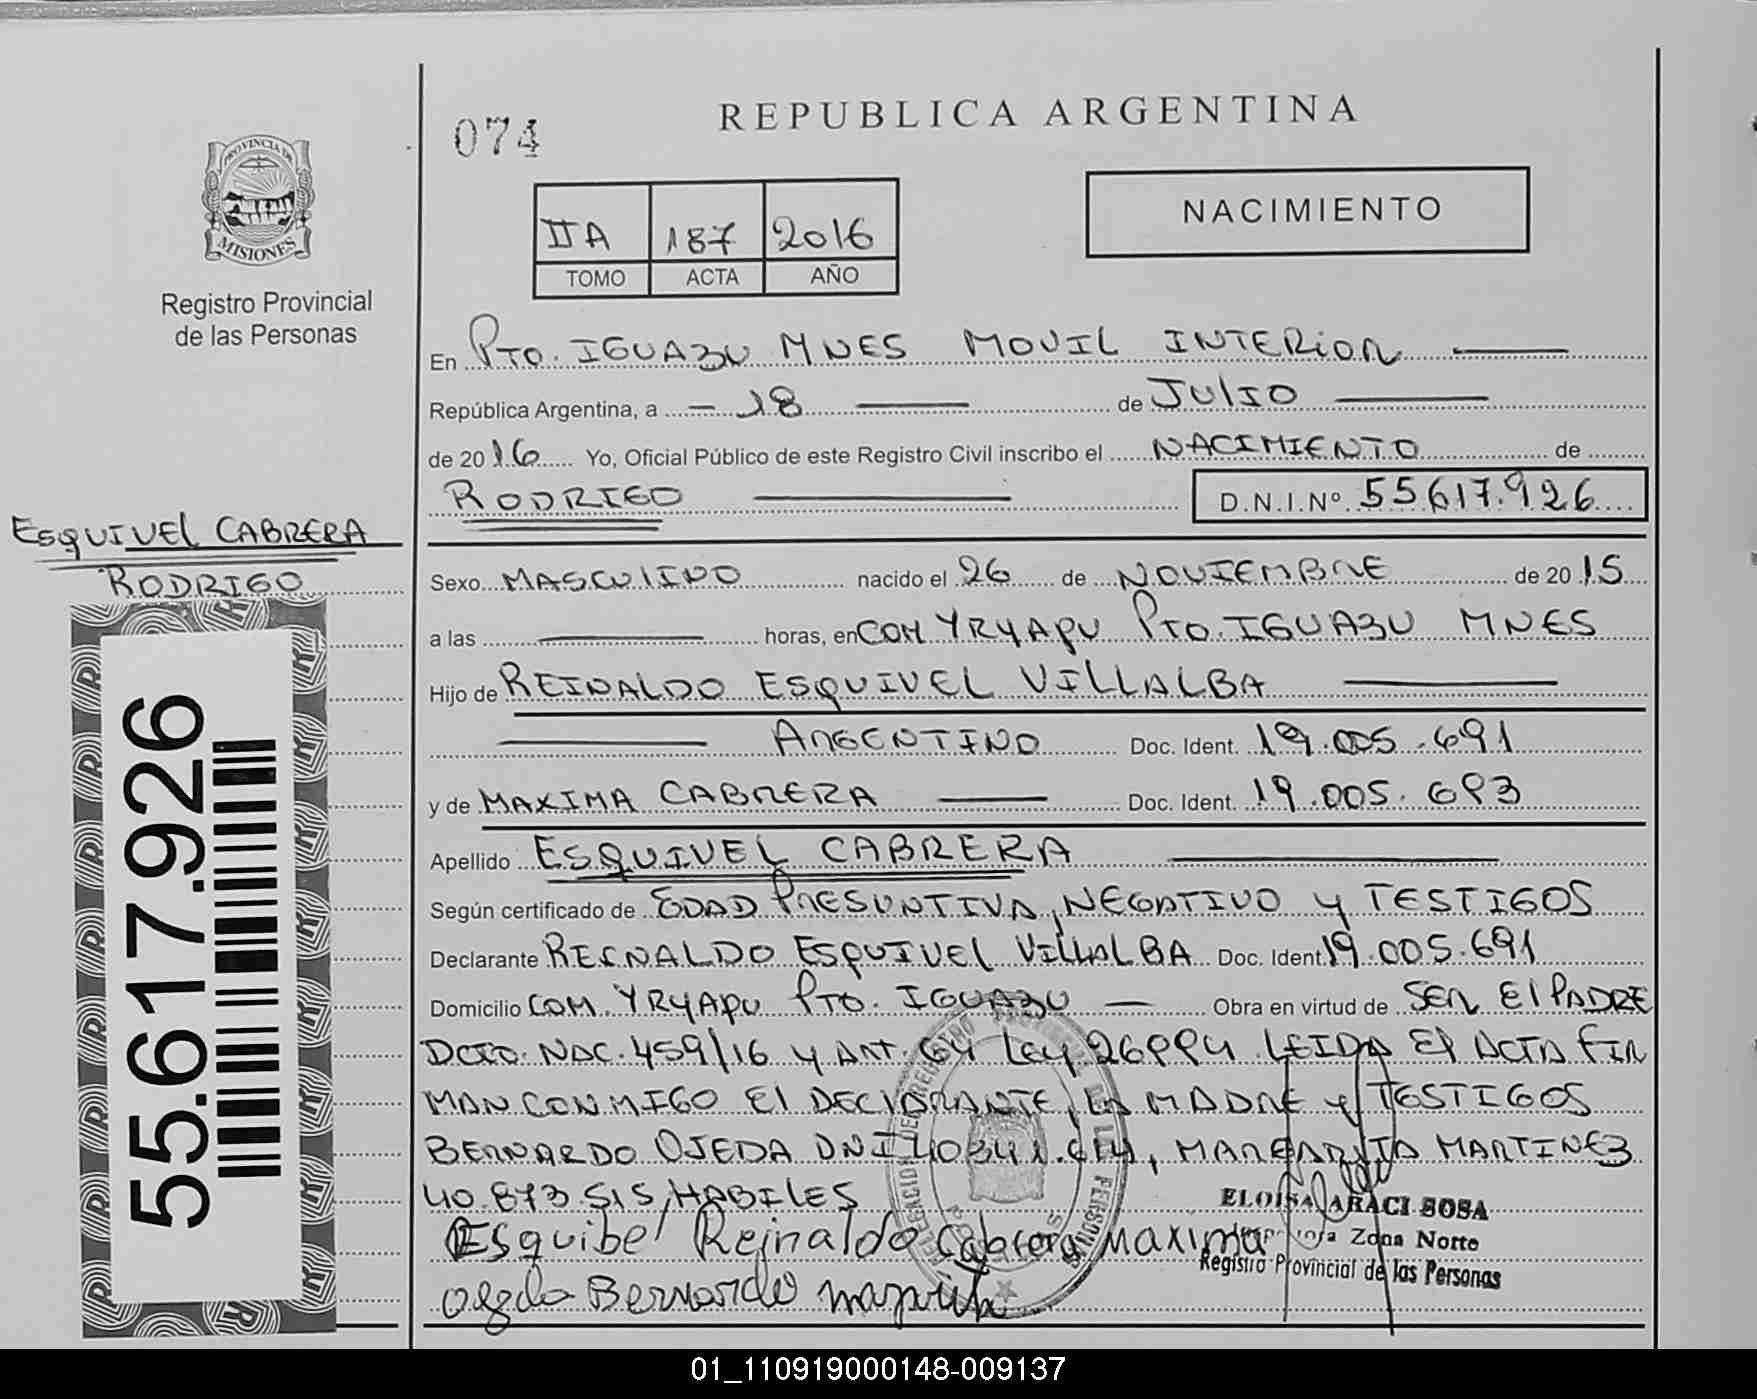 REPUBLICA ARGENTINA
074
NACIMIENTO
IIA 187 2016
TOMO ACTA AÑO
PROVINCIA DE
MISIONES
Registro Provincial
de las Personas
En Pto. IGUAZU MNES MOVIL INTERIOR
República Argentina, a 18 de JULIO
de 2016 Yo, Oficial Público de este Registro Civil inscribo el NACIMIENTO de
RODRIGO D.N.I.Nº 55617.926
ESQUIVEL CABRERA
RODRIGO
55.617.926
Sexo MASCULINO nacido el 26 de NOVIEMBRE de 2015
a las horas, en COM YRYAPU Pto. IGUAZU MNES
Hijo de REINALDO ESQUIVEL VILLALBA
ARGENTINO Doc. Ident. 19.005.691
y de MAXIMA CABRERA Doc. Ident. 19.005.693
Apellido ESQUIVEL CABRERA
Según certificado de EDAD PRESUNTIVA, NEGATIVO y TESTIGOS
Declarante REINALDO ESQUIVEL VILLALBA Doc. Ident 19.005.691
Domicilio COM. YRYAPU Pto. IGUAZU Obra en virtud de SER El PADRE
DCTO. NAC. 459/16 y ART. 64 Ley 26994 LEIDA El ACTA FIR
MAN CONMIGO El DECLARANTE, LA MADRE y TESTIGOS
BERNARDO OJEDA DNI, MARGARITA MARTINEZ
40.873.515, HABILES
Esquibel Reinaldo Cabrera Maxima
Bernardo
ELOISA ARACI SOSA
Zona Norte
Registro Provincial de las Personas
01_110919000148-009137